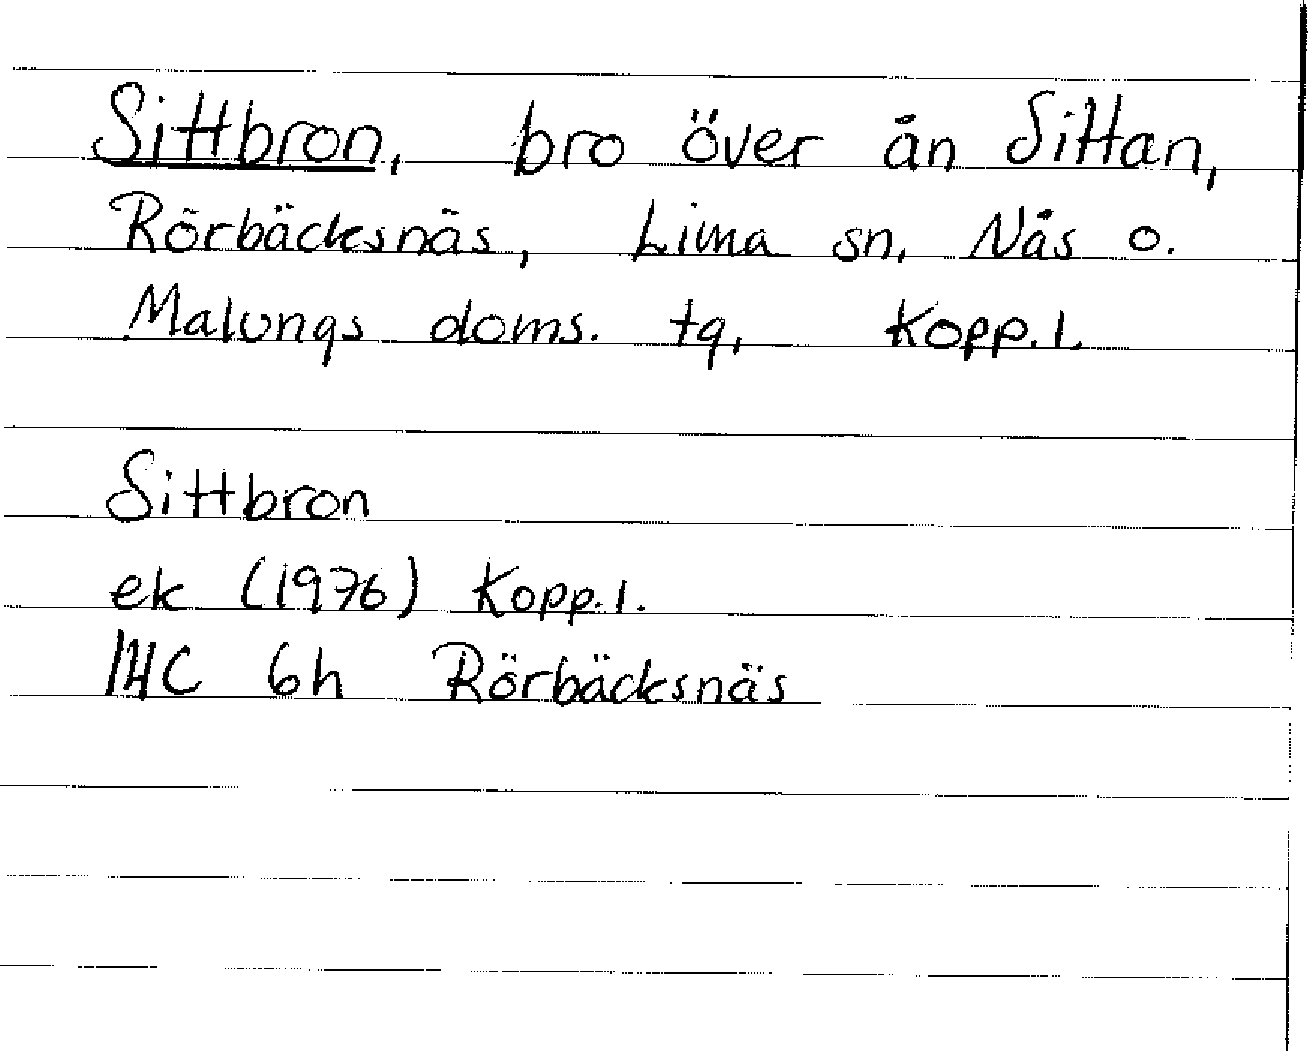 Sittbron, bro över ån Sittan,
Rörbäcksnäs, Lima sn, Nås o.
Malungs doms. tg, Kopp. l.
Sittbron
ek (1976) Kopp. l.
14C 6h Rörbäcksnäs